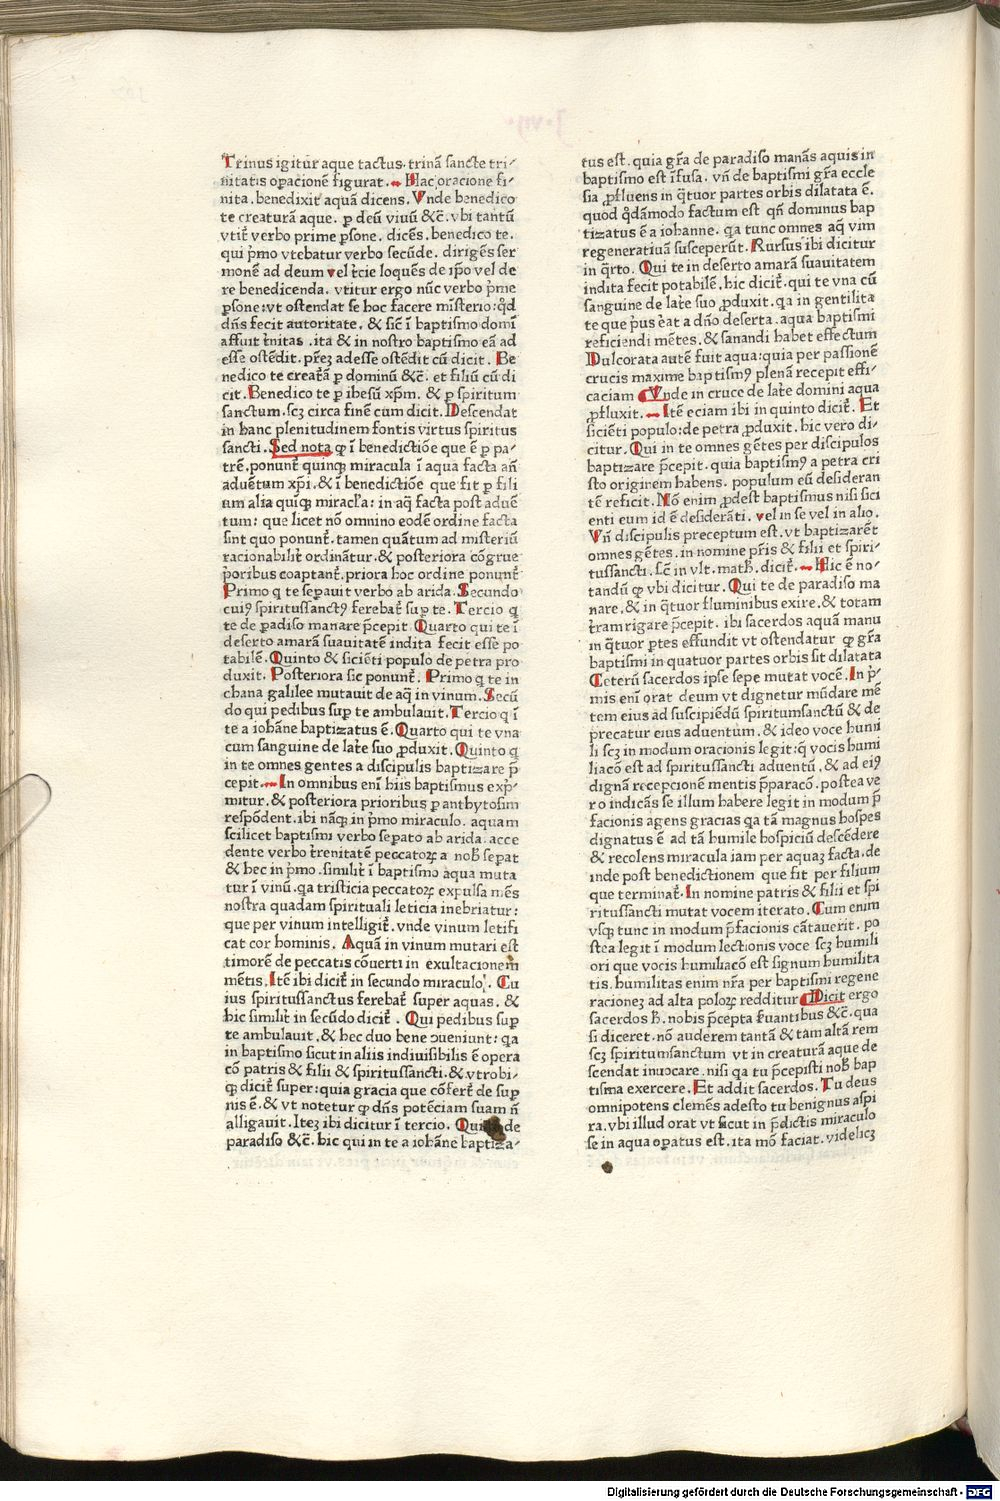 Trinus igitur aque tactus. trinā sancte tri/
nitatis opacionē figurat. Hac oracione fi/
nita. benedixit aquā dicens. Vnde benedico
te creaturā aque. ꝑ deū viuū &c̄. vbi tantū
vtit̄ verbo prime ꝑsone. dicēs. benedico te.
qui p̄mo vtebatur verbo secūde. dirigēs ser
monē ad deum vel t̄cie loquēs de ip̄o vel de
re benedicenda. vtitur ergo nūc verbo p̄me
ꝑsone: vt ostendat se hoc facere misterio: q̄d
dn̄s fecit autoritate. & sic̄ ī baptismo domī
affuit t̄nitas. ita & in nostro baptismo eā ad
esse ostēdit. p̄rez adesse ostēdit cū dicit. Be
nedico te creat̄ā ꝑ dominū &c̄. et filiū cū di
cit. Benedico te ꝑ ihesū xp̄m. & ꝑ spiritum
sanctum. scz circa finē cum dicit. Descendat
in hanc plenitudinem fontis virtus spiritus
sancti. Sed nota ꝙ ī benedictiōe que ē ꝑ pa/
trē. ponunt̄ quinqꝫ miracula ī aqua facta an̄
aduētum xp̄i. & ī benedictiōe que fit ꝑ fili
um alia quīqꝫ miracl'a: in aq̄ facta post aduē
tum: que licet nō omnino eodē ordine facta
sint quo ponunt̄. tamen quātum ad misteriū
racionabilit̄ ordinātur. & posteriora cōgrue
p̄oribus coaptant̄. priora hoc ordine ponunt̄
Primo q te seꝑauit verbo ab arida. Secundo
cuiꝰ spiritussanctꝰ ferebat̄ suꝑ te. Tercio q
te de ꝑadiso manare p̄cepit. Quarto qui te ī
deserto amarā suauitatē indita fecit esse po
tabilē. Quinto & siciēti populo de petra pro
duxit. Posteriora sic ponunt̄. Primo q te in
chana galilee mutauit de aq̄ in vinum. Secū
do qui pedibus suꝑ te ambulauit. Tercio q ī
te a iohāne baptizatus ē. Quarto qui te vna
cum sanguine de lat̄e suo ꝓduxit. Quinto q
in te omnes gentes a discipulis baptizare p̄
cepit. In omnibus enī hiis baptismus exp̄/
mitur. & posteriora prioribus ꝑ anthytosim
respōdent. ibi nāqꝫ in p̄mo miraculo. aquam
scilicet baptismi verbo seꝑato ab arida. acce
dente verbo t̄renitatē peccatoꝝ a nob̄ seꝑat
& hec in p̄mo. similit̄ ī baptismo aqua muta
tur ī vinū. qa tristicia peccatoꝝ expulsa mēs
nostra quadam spirituali leticia inebriatur:
que per vinum intelligit̄. vnde vinum letifi
cat cor hominis. Aquā in vinum mutari est
timorē de peccatis cōuerti in exultacionem
mētis. Itē ibi dicit̄ in secundo miraculo. Cu
ius spiritussanctus ferebat̄ super aquas. &
hic similit̄ in secūdo dicit̄. Qui pedibus suꝑ
te ambulauit. & hec duo bene ꝯueniunt: qa
in baptismo sicut in aliis indiuisibilis ē opera
cō patris & filii & spiritussancti. & vtrobi/
qꝫ dicit̄ super: quia gracia que cōfert̄ de suꝑ
nis ē. & vt notetur ꝙ dn̄s potēciam suam n̄
alligauit. Itez ibi dicitur ī tercio. Qui de
paradiso &c̄. hic qui in te a iohāne baptiza/
tus est. quia gr̄a de paradiso manās aquis in
baptismo est īfusa. vn̄ de baptismi gr̄a eccle
sia ꝓfluens in q̄tuor partes orbis dilatata ē.
quod q̄dāmodo factum est qn̄ dominus bap
tizatus ē a iohanne. qa tunc omnes aq̄ vim
regeneratiuā susceperūt. Rursus ibi dicitur
in q̄rto. Qui te in deserto amarā suauitatem
indita fecit potabilē. hic dicit̄. qui te vna cū
sanguine de lat̄e suo ꝓduxit. qa in gentilita
te que p̄us ēat a dn̄o deserta. aqua baptismi
reficiendi mētes. & sanandi habet effectum
Dulcorata autē fuit aqua: quia per passionē
crucis maxime baptismꝰ plenā recepit effi/
caciam Vnde in cruce de lat̄e domini aqua
ꝓfluxit. Itē eciam ibi in quinto dicit̄. Et
siciēti populo: de petra ꝓduxit. hic vero di/
citur. Qui in te omnes gētes per discipulos
baptizare p̄cepit. quia baptismꝰ a petra cri
sto originem habens. populum eū desideran
tē reficit. Nō enim ꝓdest baptismus nisi sici
enti eum id ē desiderāti. vel in se vel in alio.
Vn̄ discipulis preceptum est. vt baptizarēt
omnes gētes. in nomine p̄ris & filii et spiri/
tussancti. sc̄ in vlt. math̄. dicit̄. Hic ē no/
tandū ꝙ vbi dicitur. Qui te de paradiso ma
nare. & in q̄tuor fluminibus exire. & totam
t̄ram rigare p̄cepit. ibi sacerdos aquā manu
in q̄tuor ꝑtes effundit vt ostendatur ꝙ gr̄a
baptismi in quatuor partes orbis sit dilatata
Ceterū sacerdos ipse sepe mutat vocē. In p̄/
mis enī orat deum vt dignetur mūdare mē
tem eius ad suscipiēdū spiritumsanctū & de
precatur eius aduentum. & ideo voce humi
li scz in modum oracionis legit: q̄ vocis humi
liacō est ad spiritussancti aduentū. & ad eiꝰ
dignā recepcionē mentis p̄paracō. postea ve
ro indicās se illum habere legit in modum p̄
facionis agens gracias qa tā magnus hospes
dignatus ē ad tā humile hospiciū descēdere
& recolens miracula iam per aquaz facta. de
inde post benedictionem que fit per filium
que terminat̄. In nomine patris & filii et spi
ritussancti mutat vocem iterato. Cum enim
vsqꝫ tunc in modum p̄facionis cātauerit. po
stea legit ī modum lectionis voce scz humili
ori que vocis humiliacō est signum humilita
tis. humilitas enim nr̄a per baptismi regene
racionez ad alta poloꝝ redditur Dicit ergo
sacerdos h̄. nobis p̄cepta s̄uantibus &c̄. qua
si diceret. nō auderem tantā & tam altā rem
scz spiritumsanctum vt in creaturā aque de
scendat inuocare. nisi qa tu p̄cepisti nob̄ bap
tisma exercere. Et addit sacerdos. Tu deus
omnipotens clemēs adesto tu benignus aspi
ra. vbi illud orat vt sicut in p̄dictis miraculo
se in aqua oꝑatus est. ita mō faciat. videlicz
Digitalisierung gefördert durch die Deutsche Forschungsgemeinschaft - DFG